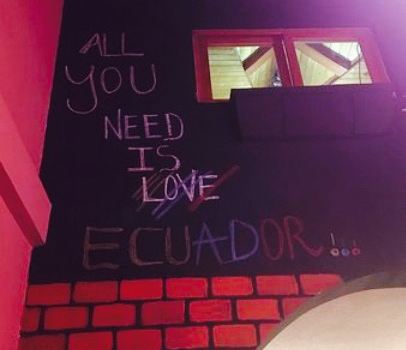 ALL
YOU
NEED
IS
LOVE
ECUADOR...